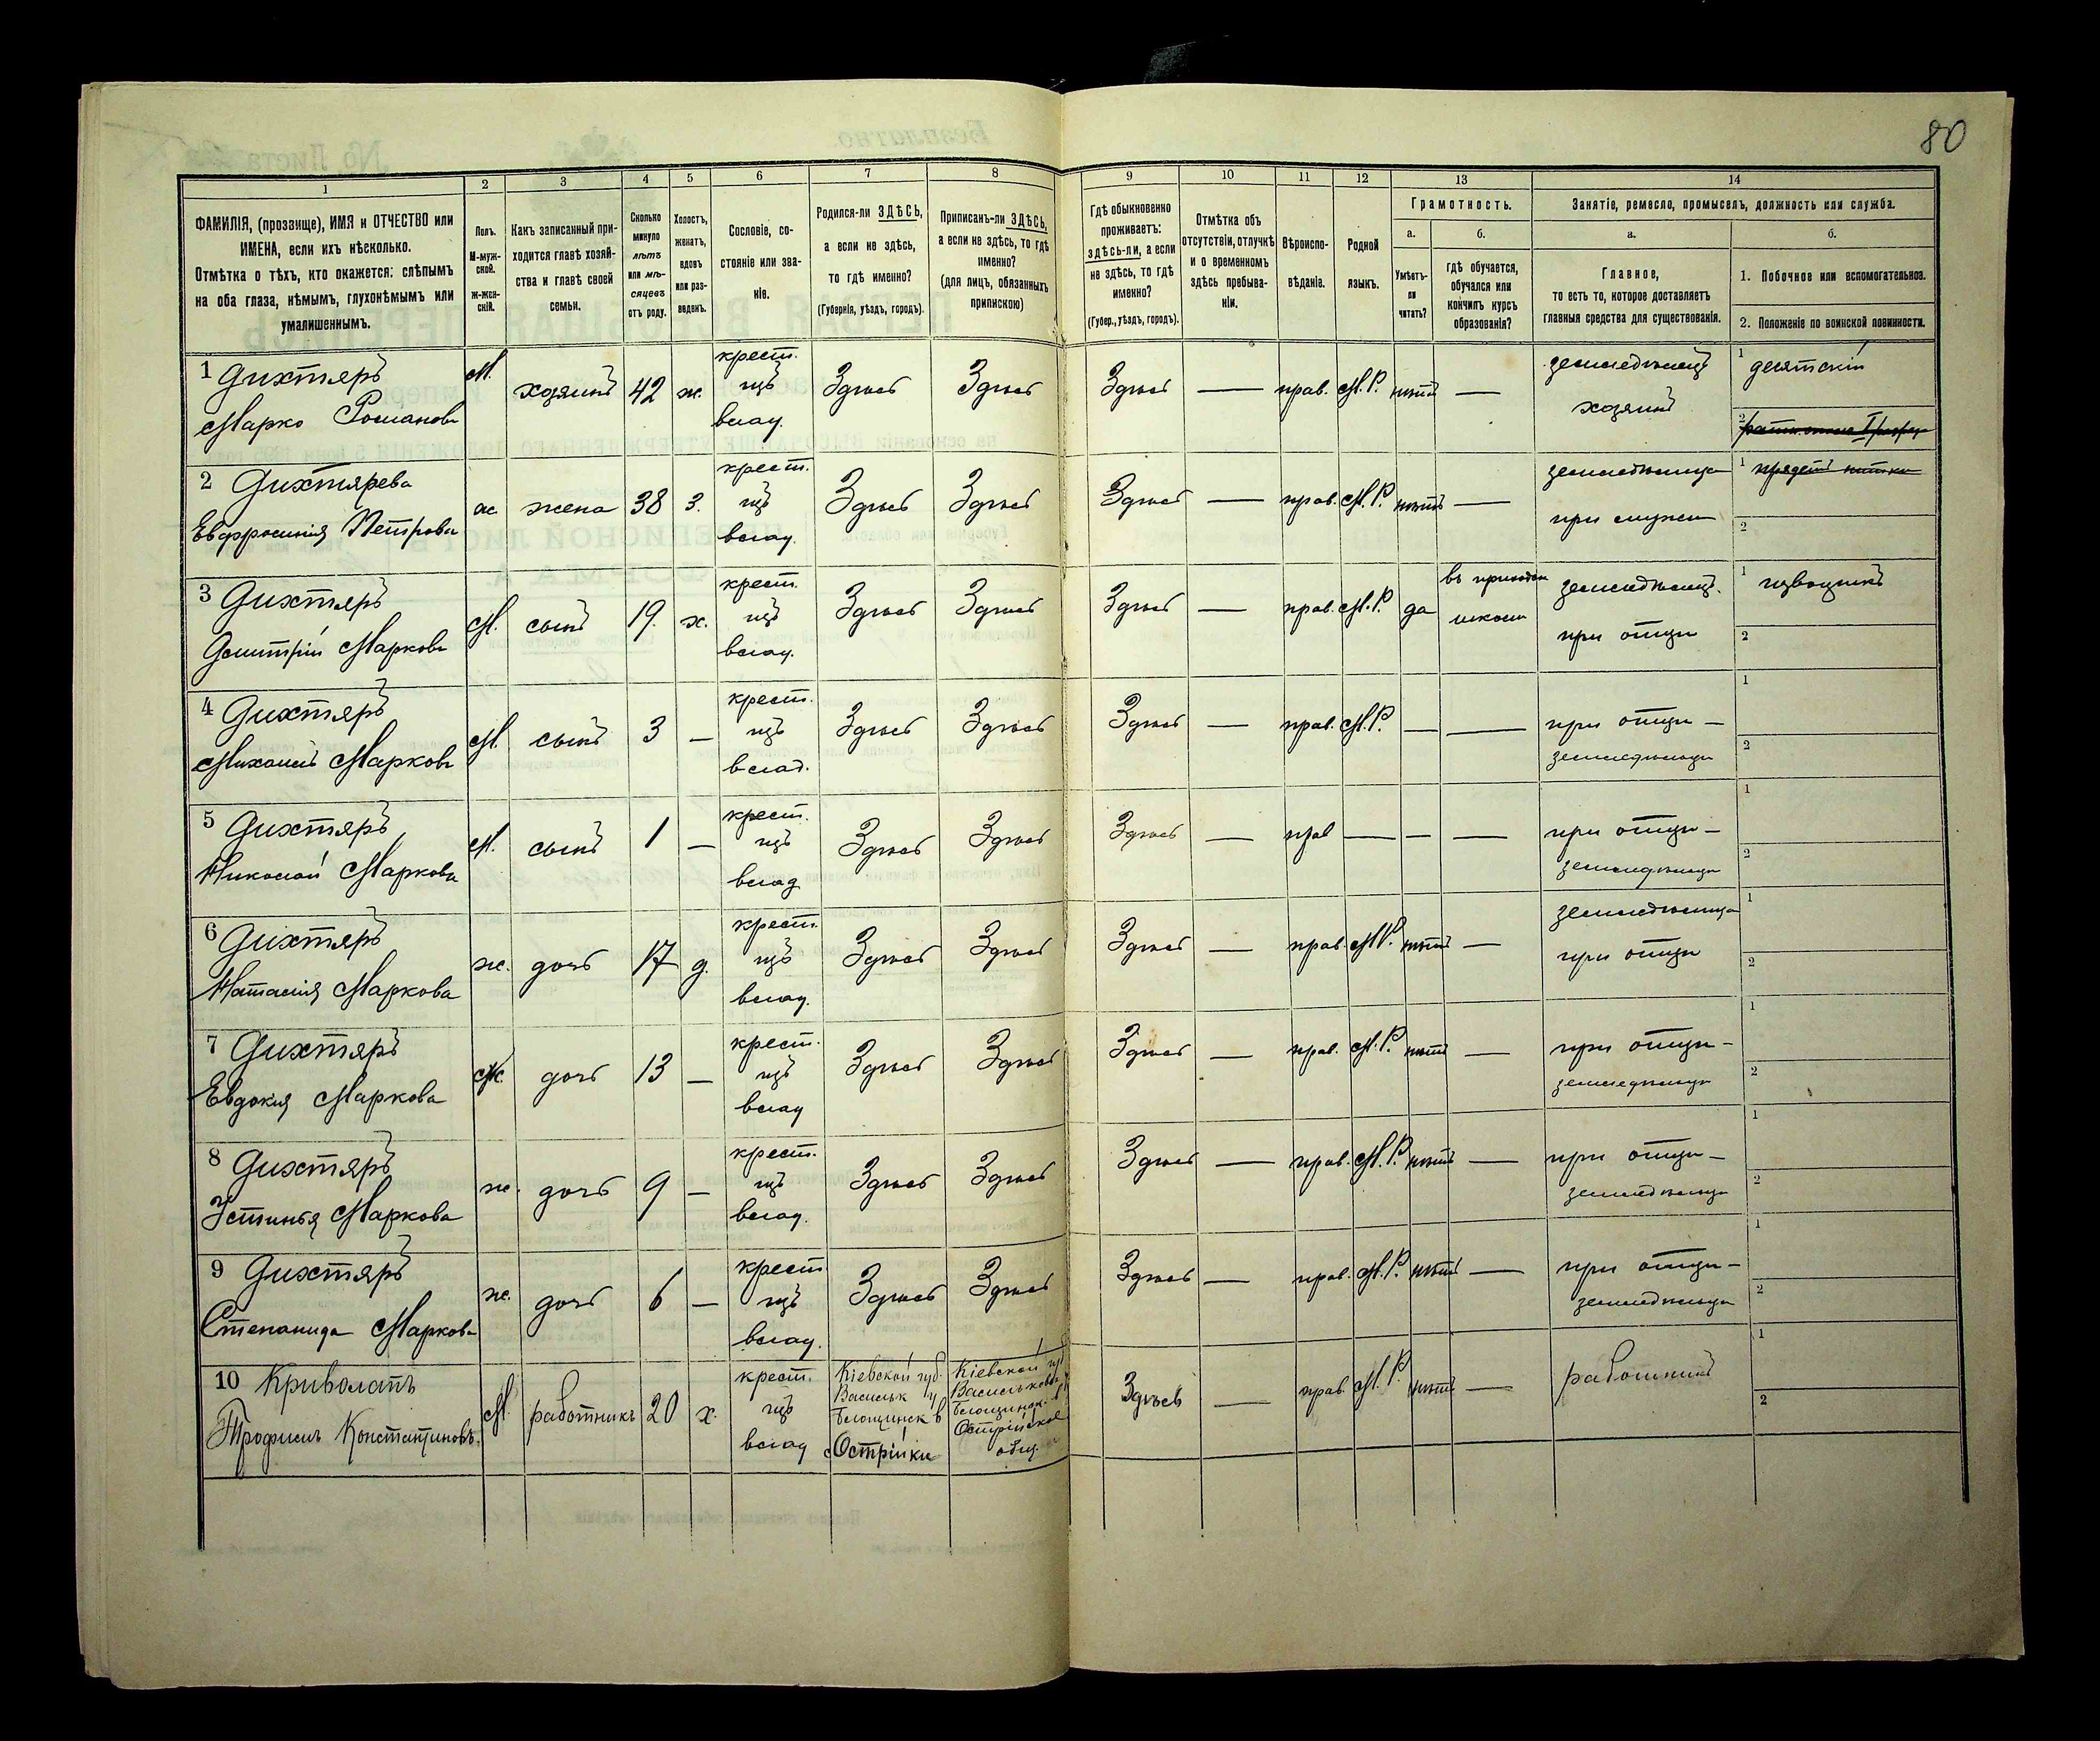 80
1 2 3 4 5 6 7 8 9 10 11 12 13 14
ФАМИЛІЯ, (прозвище), ИМЯ и ОТЧЕСТВО или
ИМЕНА, если ихъ нѣсколько.
Отмѣтка о тѣхъ, кто окажется: слѣпымъ
на оба глаза, нѣмымъ, глухонѣмымъ или
умалишеннымъ.
Полъ.
М-муж-
ской.
ж-жен-
скій.
Какъ записанный при-
ходится главѣ хозяй-
ства и главѣ своей
семьи.
Сколько
минуло
лѣтъ
или мѣ-
сяцевъ
отъ роду.
Холостъ,
женатъ,
вдовъ
или раз-
веденъ.
Сословіе, со-
стояніе или зва-
ніе.
Родился-ли ЗДѢСЬ,
а если не здѣсь,
то гдѣ именно?
(Губернія, уѣздъ, городъ).
Приписанъ-ли ЗДѢСЬ,
а если не здѣсь, то гдѣ
именно?
(для лицъ, обязанныхъ
припискою)
Гдѣ обыкновенно
проживаетъ:
здѣсь-ли, а если
не здѣсь, то гдѣ
именно?
(Губер., уѣздъ, городъ).
Отмѣтка объ
отсутствіи, отлучкѣ
и о временномъ
здѣсь пребыва-
ніи.
Вѣроиспо-
вѣданіе.
Родной
языкъ.
Грамотность.
а.
Умѣетъ-
ли
читать?
б.
гдѣ обучается,
обучался или
кончилъ курсъ
образованія?
Занятіе, ремесло, промыселъ, должность или служба.
а.
Главное,
то есть то, которое доставляетъ
главныя средства для существованія.
б.
1. Побочное или вспомогательное.
2. Положеніе по воинской повинности.
1 Дихтярь
Марко Романовъ
М.
хозяинъ
42
ж.
крест.
изъ
влад.
Здѣсь
Здѣсь
Здѣсь
—
прав.
М.Р.
нѣтъ
—
земледѣлецъ
хозяинъ
1 десятскій
2
2 Дихтярева
Евфросинія Петрова
ж
жена
38
з.
крест.
изъ
влад.
Здѣсь
Здѣсь
Здѣсь
—
прав.
М.Р.
нѣтъ
—
земледѣлица
при мужи
1 прядетъ нитки
2
3 Дихтярь
Дмитрій Марковъ
М.
сынъ
19.
х.
крест.
изъ
влад.
Здѣсь
Здѣсь
Здѣсь
—
прав.
М.Р.
да
въ приходск
школи
земледѣлец.
при отци
1 извощикъ
2
4 Дихтярь
Михаилъ Марковъ
М.
сынъ
3
—
крест.
изъ
влад.
Здѣсь
Здѣсь
Здѣсь
—
прав.
М.Р.
—
—
при отци —
земледѣльци
1
2
5 Дихтярь
Николай Марковъ
М.
сынъ
1
—
крест.
изъ
влад
Здѣсь
Здѣсь
Здѣсь
—
прав
—
—
—
при отци —
земледѣльци
1
2
6 Дихтярь
Наталія Маркова
ж.
дочь
17
д.
крест.
изъ
влад.
Здѣсь
Здѣсь
Здѣсь
—
прав.
М.Р.
нѣтъ
—
земледѣлица
при отци
1
2
7 Дихтярь
Евдокія Маркова
Ж.
дочь
13
—
крест.
изъ
влад
Здѣсь
Здѣсь
Здѣсь
—
прав.
М.Р.
нѣтъ
—
при отци —
земледѣльци
1
2
8 Дихтярь
Устинья Маркова
ж.
дочь
9
—
крест.
изъ
влад.
Здѣсь
Здѣсь
Здѣсь
—
прав.
М.Р.
нѣтъ
—
при отци —
земледѣльци
1
2
9 Дихтярь
Степанида Маркова
ж.
дочь
6
—
крест
изъ
влад.
Здѣсь
Здѣсь
Здѣсь
—
прав.
М.Р.
нѣтъ
—
при отци —
земледѣльци
1
2
10 Криволапъ
Трофимъ Константиновъ.
М
работникъ
20
х.
крест.
изъ
влад
Кіевской губ.
Васильк у
Блощинск в
с Острійки
Кіевской губ
Васильков у
Блощинск. в
Острійское
общ.
Здѣсь
—
прав.
М.Р.
нѣтъ
—
работникъ
1
2